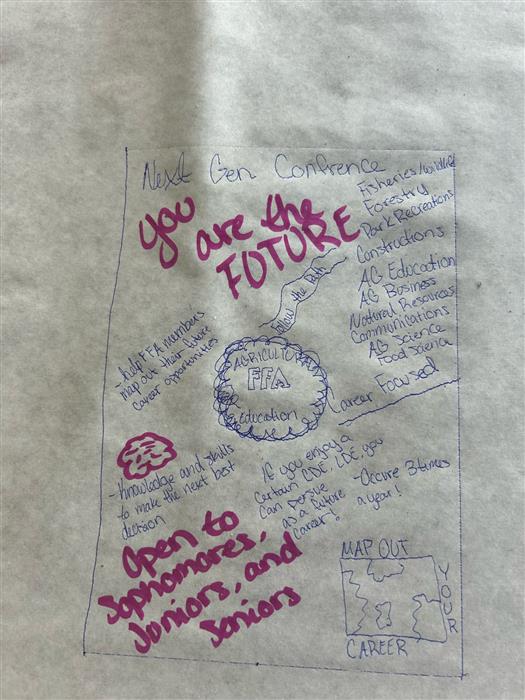 Next Gen Confrence
you are the
FUTURE
Fisheries/wildlife
Forestry
Park Recreations
Constructions
AG Education
AG Business
Natural Resources
Communications
AG science
Food science
Career Focused
follow the Path
AGRICULTURAL
FFA
Education
-help FFA members
map out their future
career opportunities
-knowledge and skills
to make the next best
decision
If you enjoy a
certain CDE, LDE, you
can persue
as a future
career!
-Occure 3 times
a year!
Open to
Sophomores,
Juniors, and
Seniors
MAP OUT
YOUR
CAREER